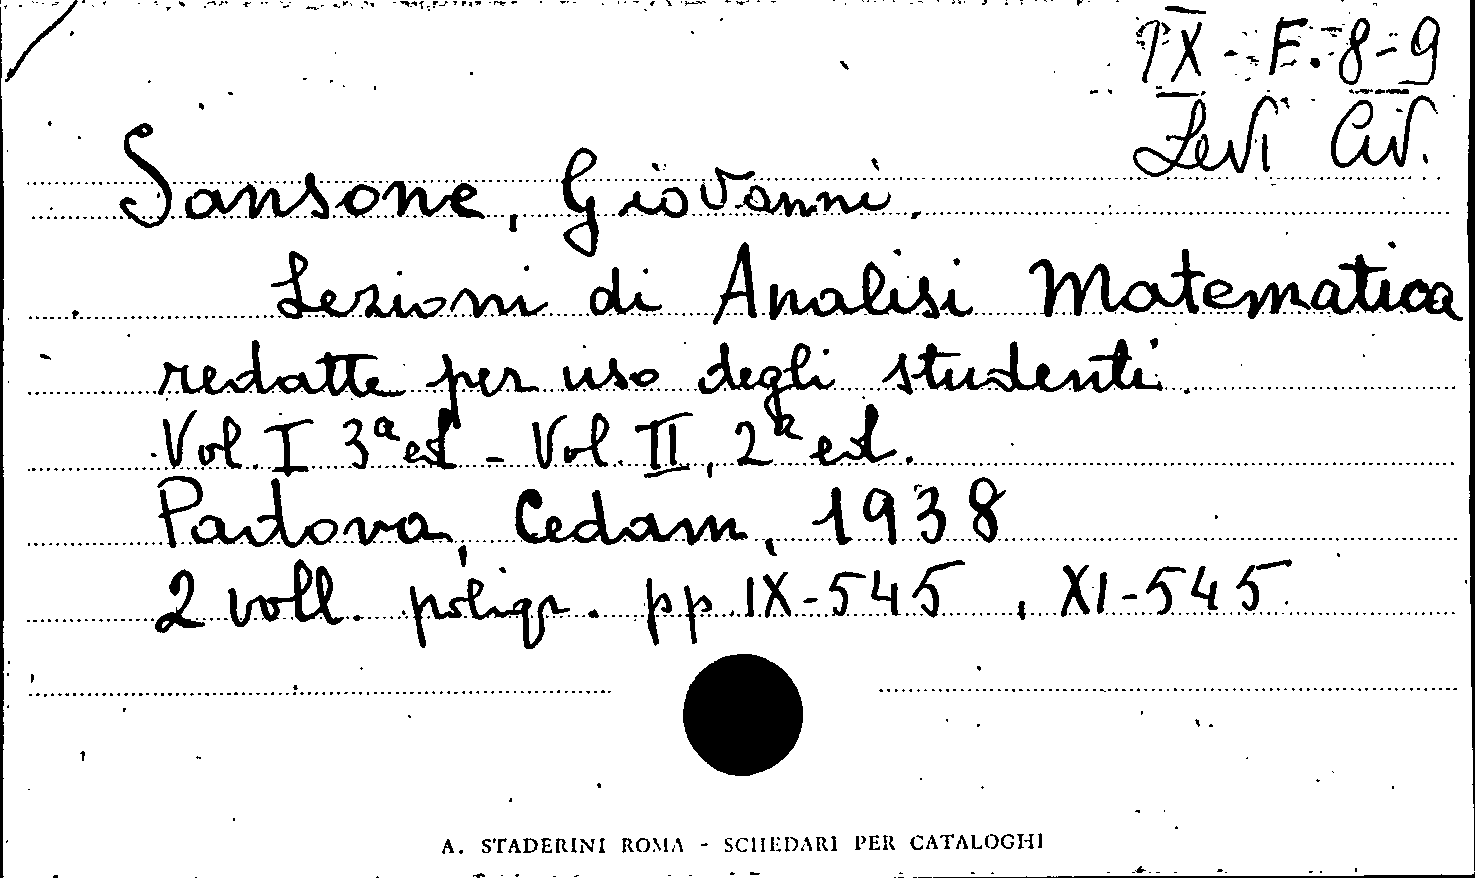 IX - F. 8-9
Levi Civ.
Sansone, Giovanni.
Lezioni di Analisi Matematica
redatte per uso degli studenti.
Vol. I 3ª ed - Vol. II, 2ª ed.
Padova, Cedam, 1938
2 voll. poligr. pp IX-545, XI-545
A. STADERINI ROMA - SCHEDARI PER CATALOGHI